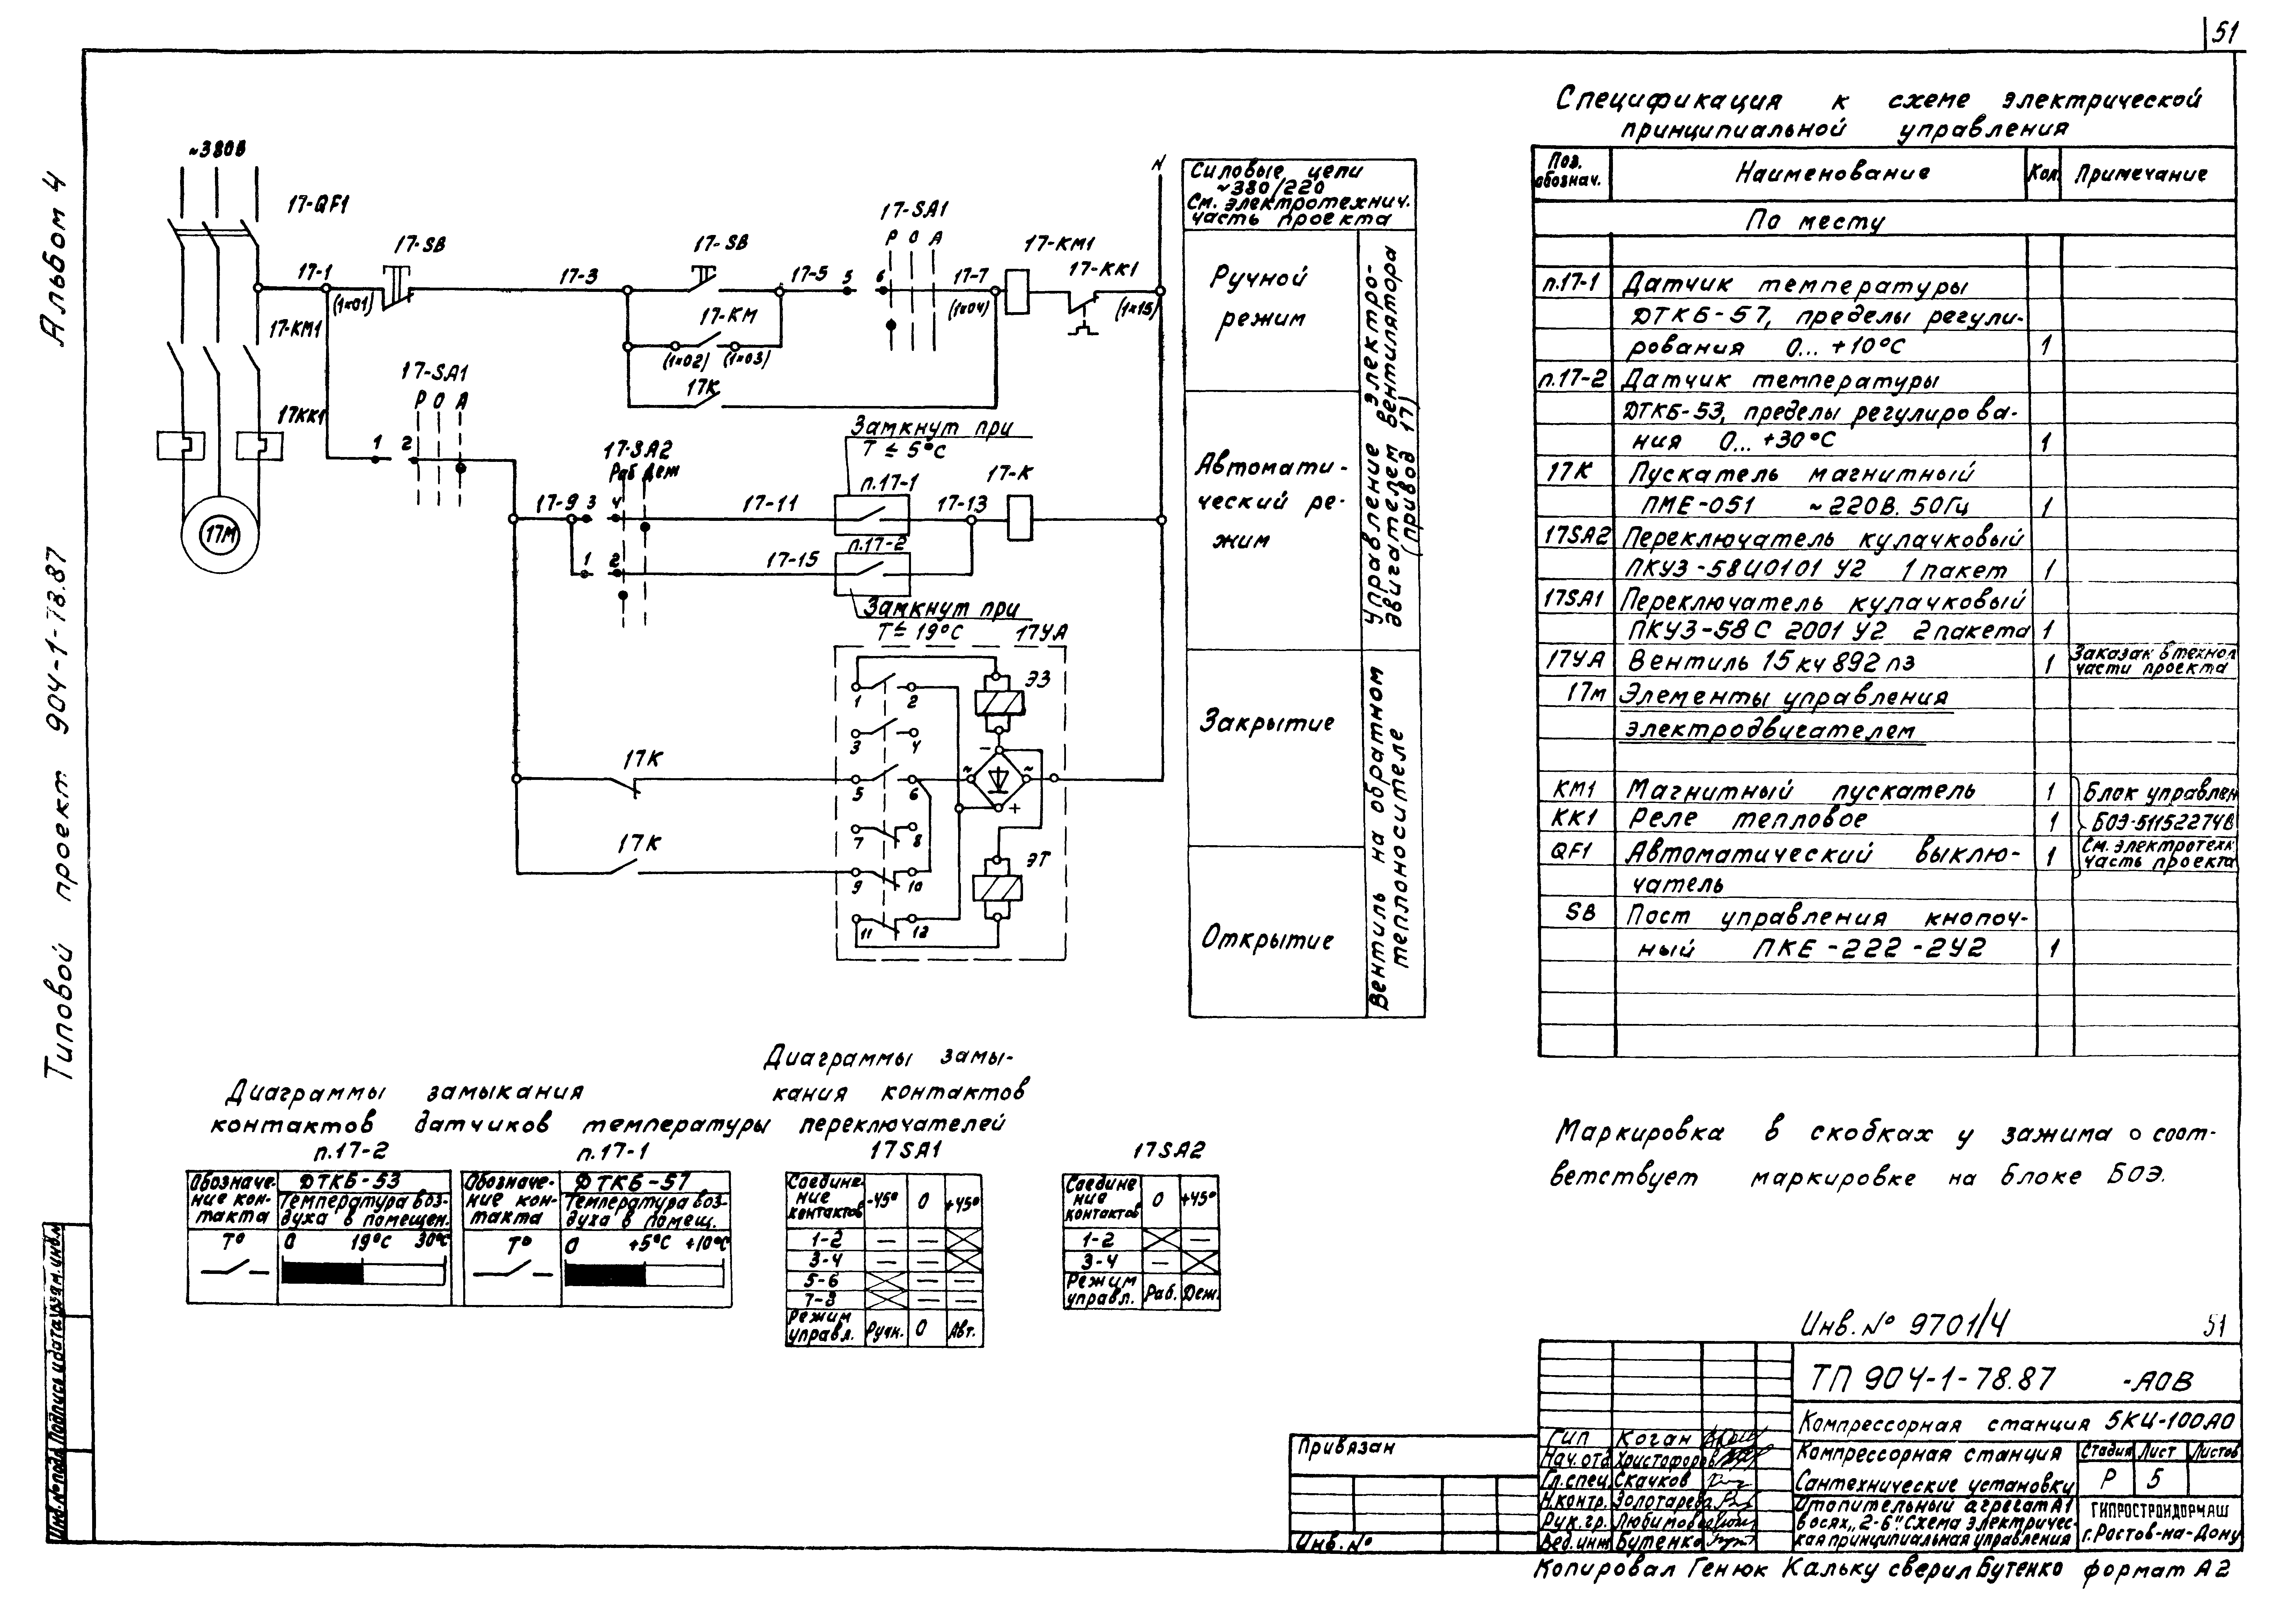 51
Альбом 4
Типовой проект 904-1-78.87
~380В
17-QF1
17-SB
17-SB
17-SA1
Р О А
17-КМ1
17-КК1
N
17-1
(1×01)
17-3
17-5
5
6
17-7
(1×04)
(1×15)
17-КМ
(1×02)
(1×03)
17К
17-КМ1
17КК1
17М
17-SA1
Р О А
1
2
17-SA2
Раб Деж
17-9
3
4
17-11
Замкнут при
Т ≤ 5°С
п.17-1
17-13
17-К
1
2
17-15
п.17-2
Замкнут при
Т ≤ 19°С
17УА
1
2
3
4
5
6
7
8
9
10
11
12
ЭЗ
ЭТ
~
~
−
+
17К
17К
Силовые цепи
~380/220
См. электротехнич.
часть проекта
Ручной
режим
Автомати-
ческий ре-
жим
Закрытие
Открытие
Управление электро-
двигателем вентилятора
(привод 17)
Вентиль на обратном
теплоносителе
Спецификация к схеме электрической
принципиальной управления
Поз. обознач.
Наименование
Кол.
Примечание
По месту
п.17-1 Датчик температуры
ДТКБ-57, пределы регули-
рования 0... +10°С 1
п.17-2 Датчик температуры
ДТКБ-53, пределы регулирова-
ния 0... +30°С 1
17К Пускатель магнитный
ПМЕ-051 ~220В. 50Гц 1
17SA2 Переключатель кулачковый
ПКУ3-58И0101 У2 1 пакет 1
17SA1 Переключатель кулачковый
ПКУ3-58С 2001 У2 2 пакета 1
17УА Вентиль 15кч 892 пз 1 Заказан в технол
части проекта
17м Элементы управления
электродвигателем
КМ1 Магнитный пускатель 1 Блок управлен
КК1 Реле тепловое 1 БОЭ-51152274В
QF1 Автоматический выклю- 1 См. электротехн
часть проекта
чатель
SB Пост управления кнопоч-
ный ПКЕ-222-2У2 1
Диаграммы замыкания
контактов датчиков температуры
п.17-2
Обозначе-
ние кон-
такта
ДТКБ-53
Температура воз-
духа в помещен.
Т°
0 19°С 30°С
п.17-1
Обозначе-
ние кон-
такта
ДТКБ-57
Температура воз-
духа в помещ.
Т°
0 +5°С +10°С
Диаграммы замы-
кания контактов
переключателей
17SA1
Соедине
ние
контактов
-45° 0 +45°
1-2 — —
3-4 — —
5-6 — —
7-8 — —
Режим
управл. Ручн. 0 Авт.
17SA2
Соедине
ние
контактов
0 +45°
1-2 —
3-4 —
Режим
управл. Раб. Деж.
Маркировка в скобках у зажима о соот-
ветствует маркировке на блоке БОЭ.
Инв.№ 9701/4
51
ТП 904-1-78.87 -АОВ
Компрессорная станция 5КЦ-100А0
Компрессорная станция
Сантехнические установки
Стадия Лист Листов
Р 5
Отопительный агрегат А1
в осях „2-6". Схема электричес-
кая принципиальная управления
ГИПРОСТРОЙДОРМАШ
г.Ростов-на-Дону
ГИП Коган
Нач.отд Христофоров
Гл.спец. Скачков
Н.контр. Золотарева
Рук.гр. Любимова
Вед.инж Бутенко
Привязан
Инв.№
Инв.№подл.
Подпись и дата
Взам.инв.№
Копировал Генюк Кальку сверил Бутенко формат А2